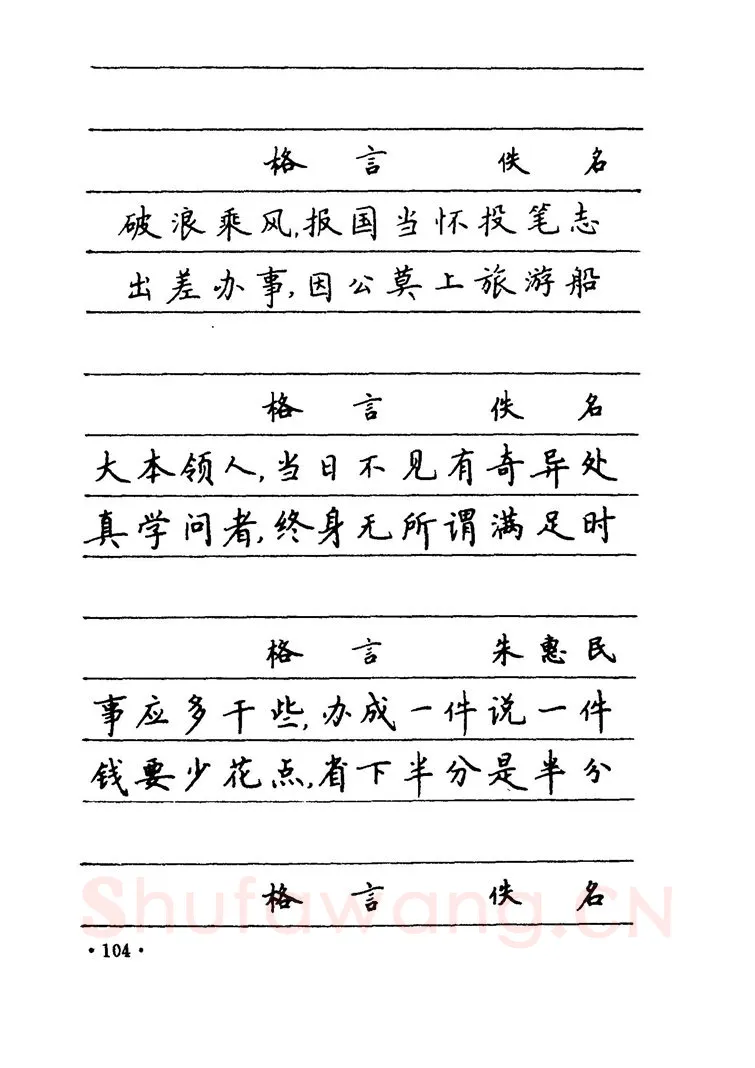 格言 佚名
破浪乘风,报国当怀投笔志
出差办事,因公莫上旅游船
格言 佚名
大本领人,当日不见有奇异处
真学问者,终身无所谓满足时
格言 朱惠民
事应多干些,办成一件说一件
钱要少花点,省下半分是半分
格言 佚名
Shufawang.CN
·104·